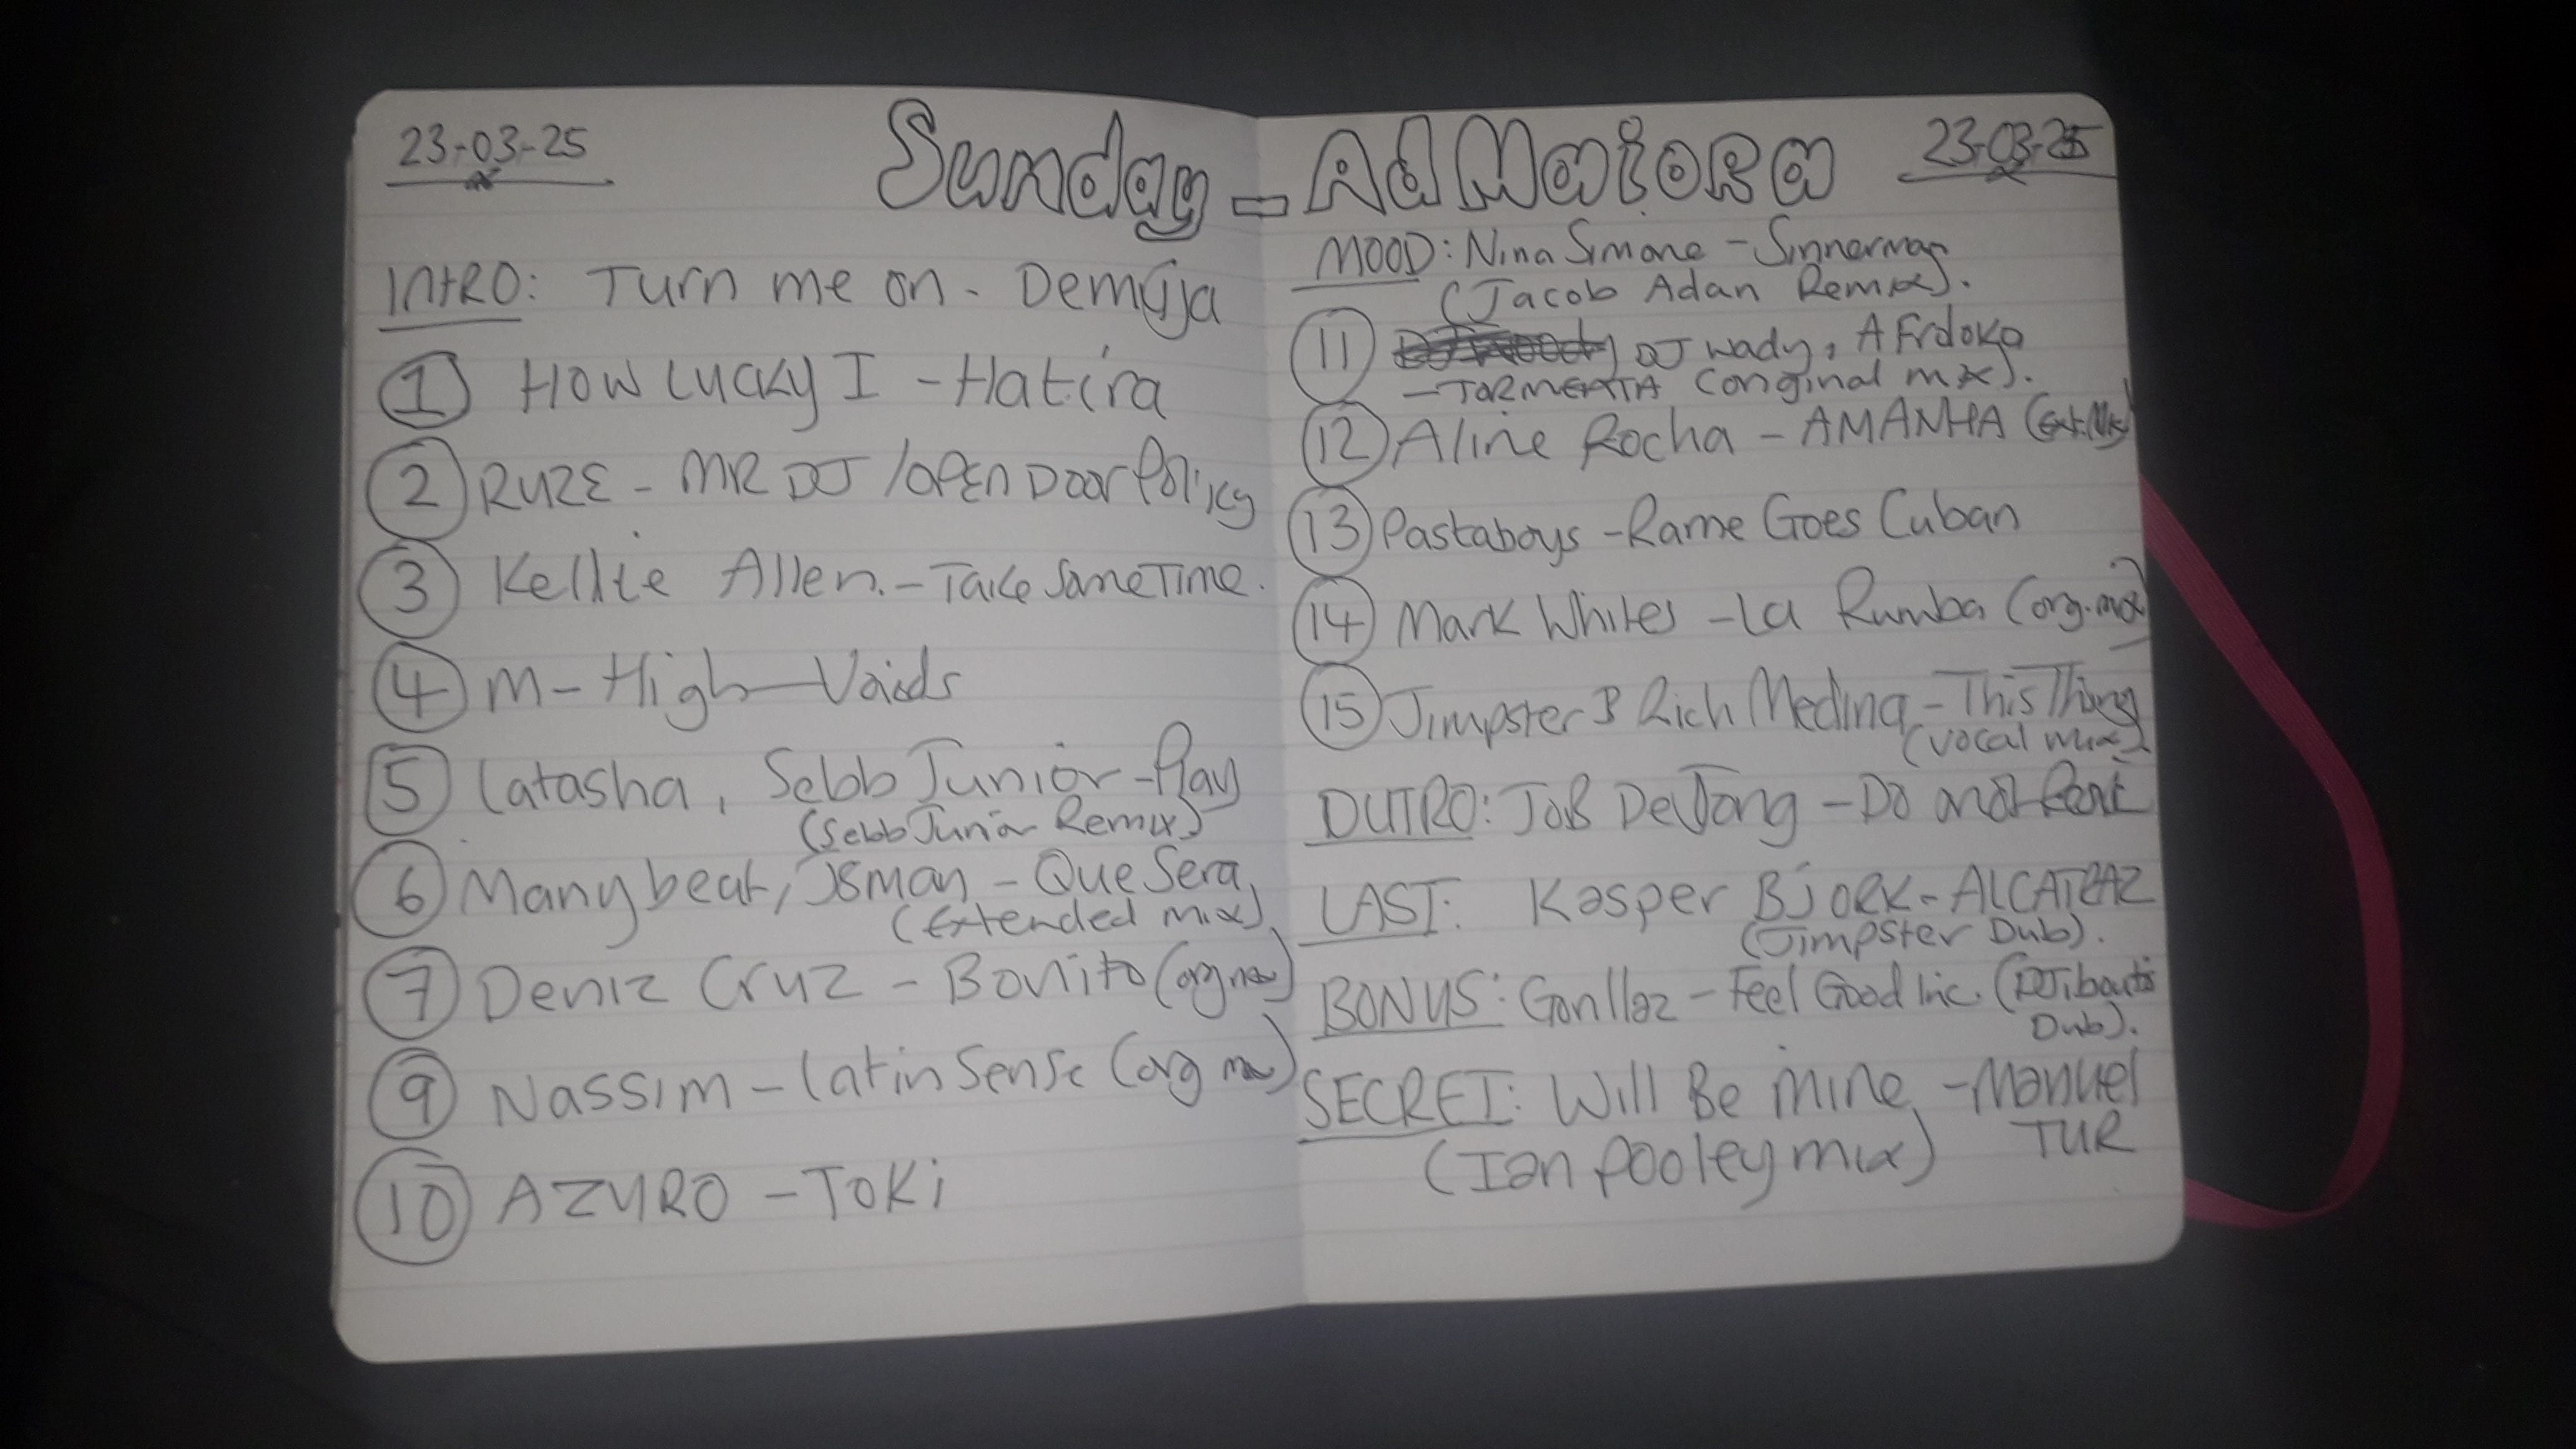 23-03-25
Sunday - Ad Maiora
23-03-25
INTRO: Turn me on - Demuja
1 HOW LUCKY I - Hatira
2 RUZE - MR DJ / OPEN Door Policy
3 Kellie Allen. - Take Some Time.
4 M-High - Voids
5 Latasha, Sebb Junior - Play
(Sebb Junior Remix)
6 Manybeat, J8man - Que Sera,
(Extended mix)
7 Deniz Cruz - Bonito (org mix)
9 Nassim - Latin Sense (org mix)
10 AZYRO - TOKi
MOOD: Nina Simone - Sinnerman
(Jacob Adan Remix).
11 DJ Wady, AFrdoKo
- TORMENTA (original mix).
12 Aline Rocha - AMANHA (Ext. Mix)
13 Pastaboys - Rame Goes Cuban
14 Mark Whites - La Rumba (org. mix)
15 Jimpster & Rich Medina - This Thing
(vocal mix)
OUTRO: JOB De Jong - Do
LAST: Kasper BJORK - ALCATRAZ
(Jimpster Dub).
BONUS: Gorillaz - Feel Good Inc.
Dub).
SECRET: Will Be mine, - Manuel
TUR
(Ian pooley mix)